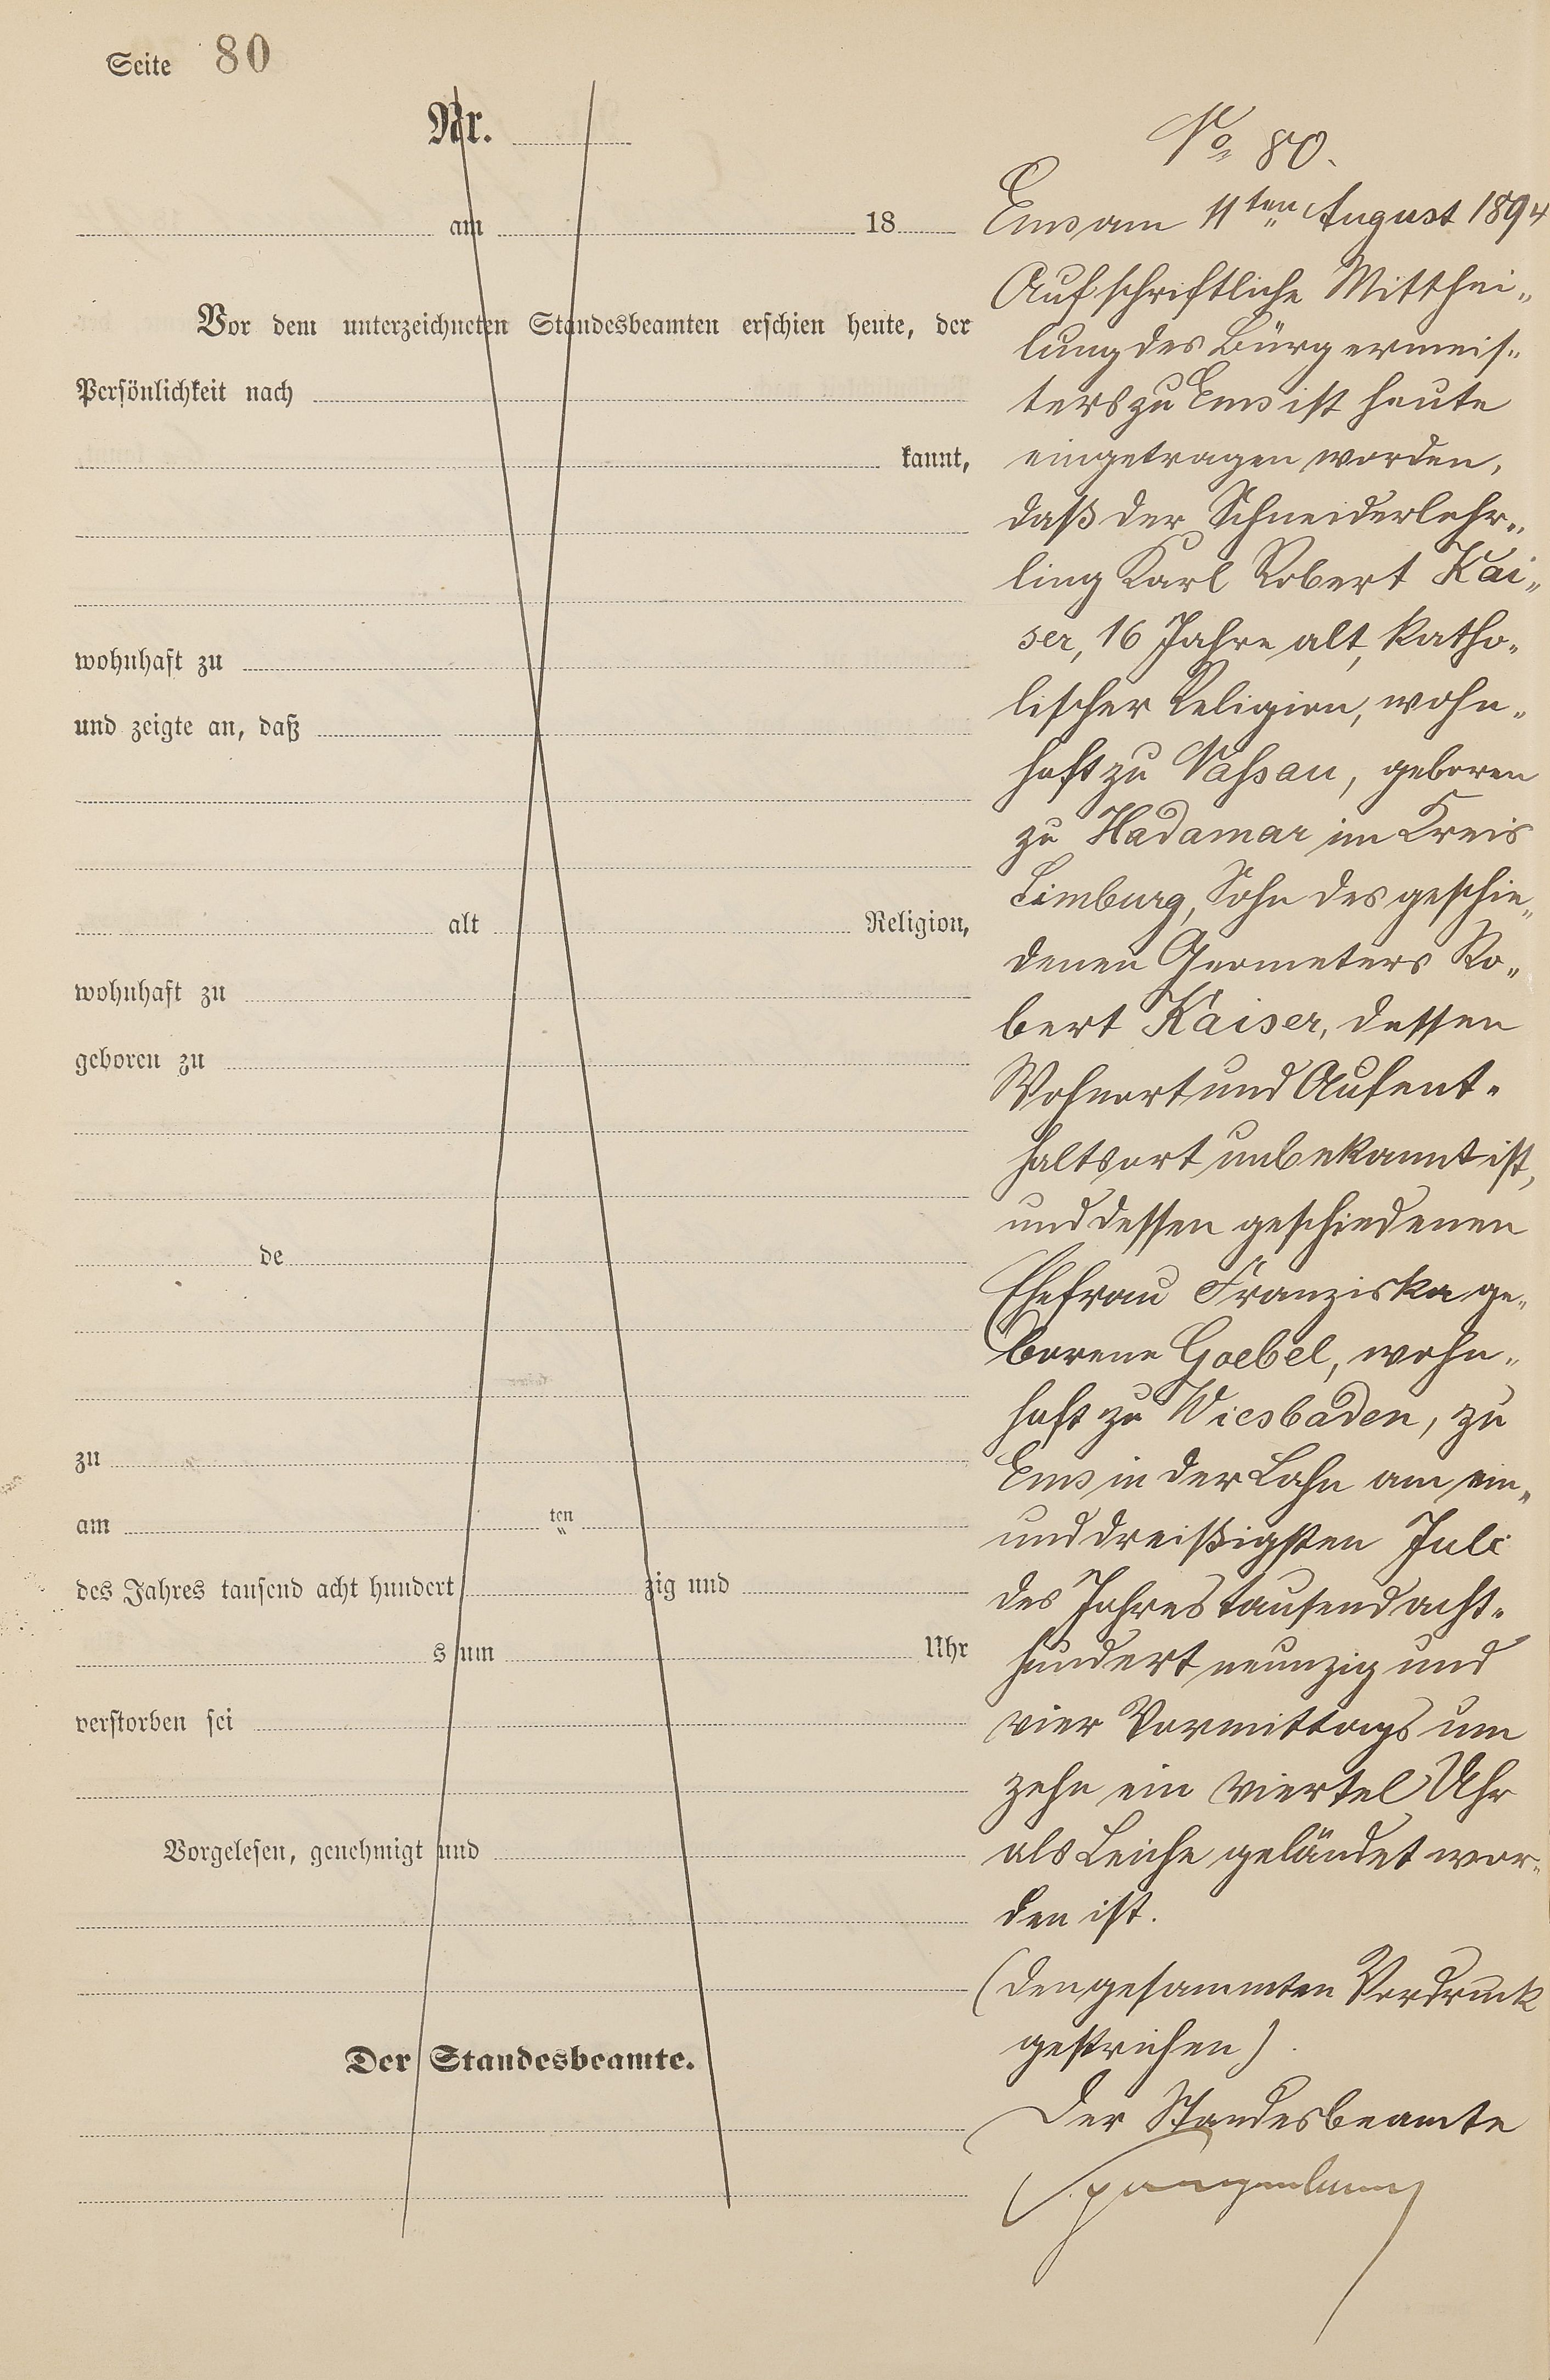 Seite 80
Nr.
am 18
Vor dem unterzeichneten Standesbeamten erschien heute, der
Persönlichkeit nach
kannt,
wohnhaft zu
und zeigte an, daß
alt Religion,
wohnhaft zu
geboren zu
de
zu
am ten
des Jahres tausend acht hundert zig und
s um Uhr
verstorben sei
Vorgelesen, genehmigt und
Der Standesbeamte.
No 80.
Ems am 11ten August 1894
Auf schriftliche Mitthei-
lung des Bürgermeis-
ters zu Ems ist heute
eingetragen worden,
daß der Schneiderlehr-
ling Karl Robert Kai-
ser, 16 Jahre alt, katho-
lischer Religion, wohn-
haft zu Nassau, geboren
zu Hadamar im Kreis
Limburg, Sohn des geschie-
denen Geometers Ro-
bert Kaiser, dessen
Wohnort und Aufent-
haltsort unbekannt ist,
und dessen geschiedenen
Ehefrau Franziska ge-
borene Goebel, wohn-
haft zu Wiesbaden, zu
Ems in der Lahn am ein-
unddreißigsten Juli
des Jahres tausend acht-
hundert neunzig und
vier Vormittags um
zehn ein viertel Uhr
als Leiche geländet wor-
den ist.
(den gesammten Vordruck
gestrichen)
Der Standesbeamte